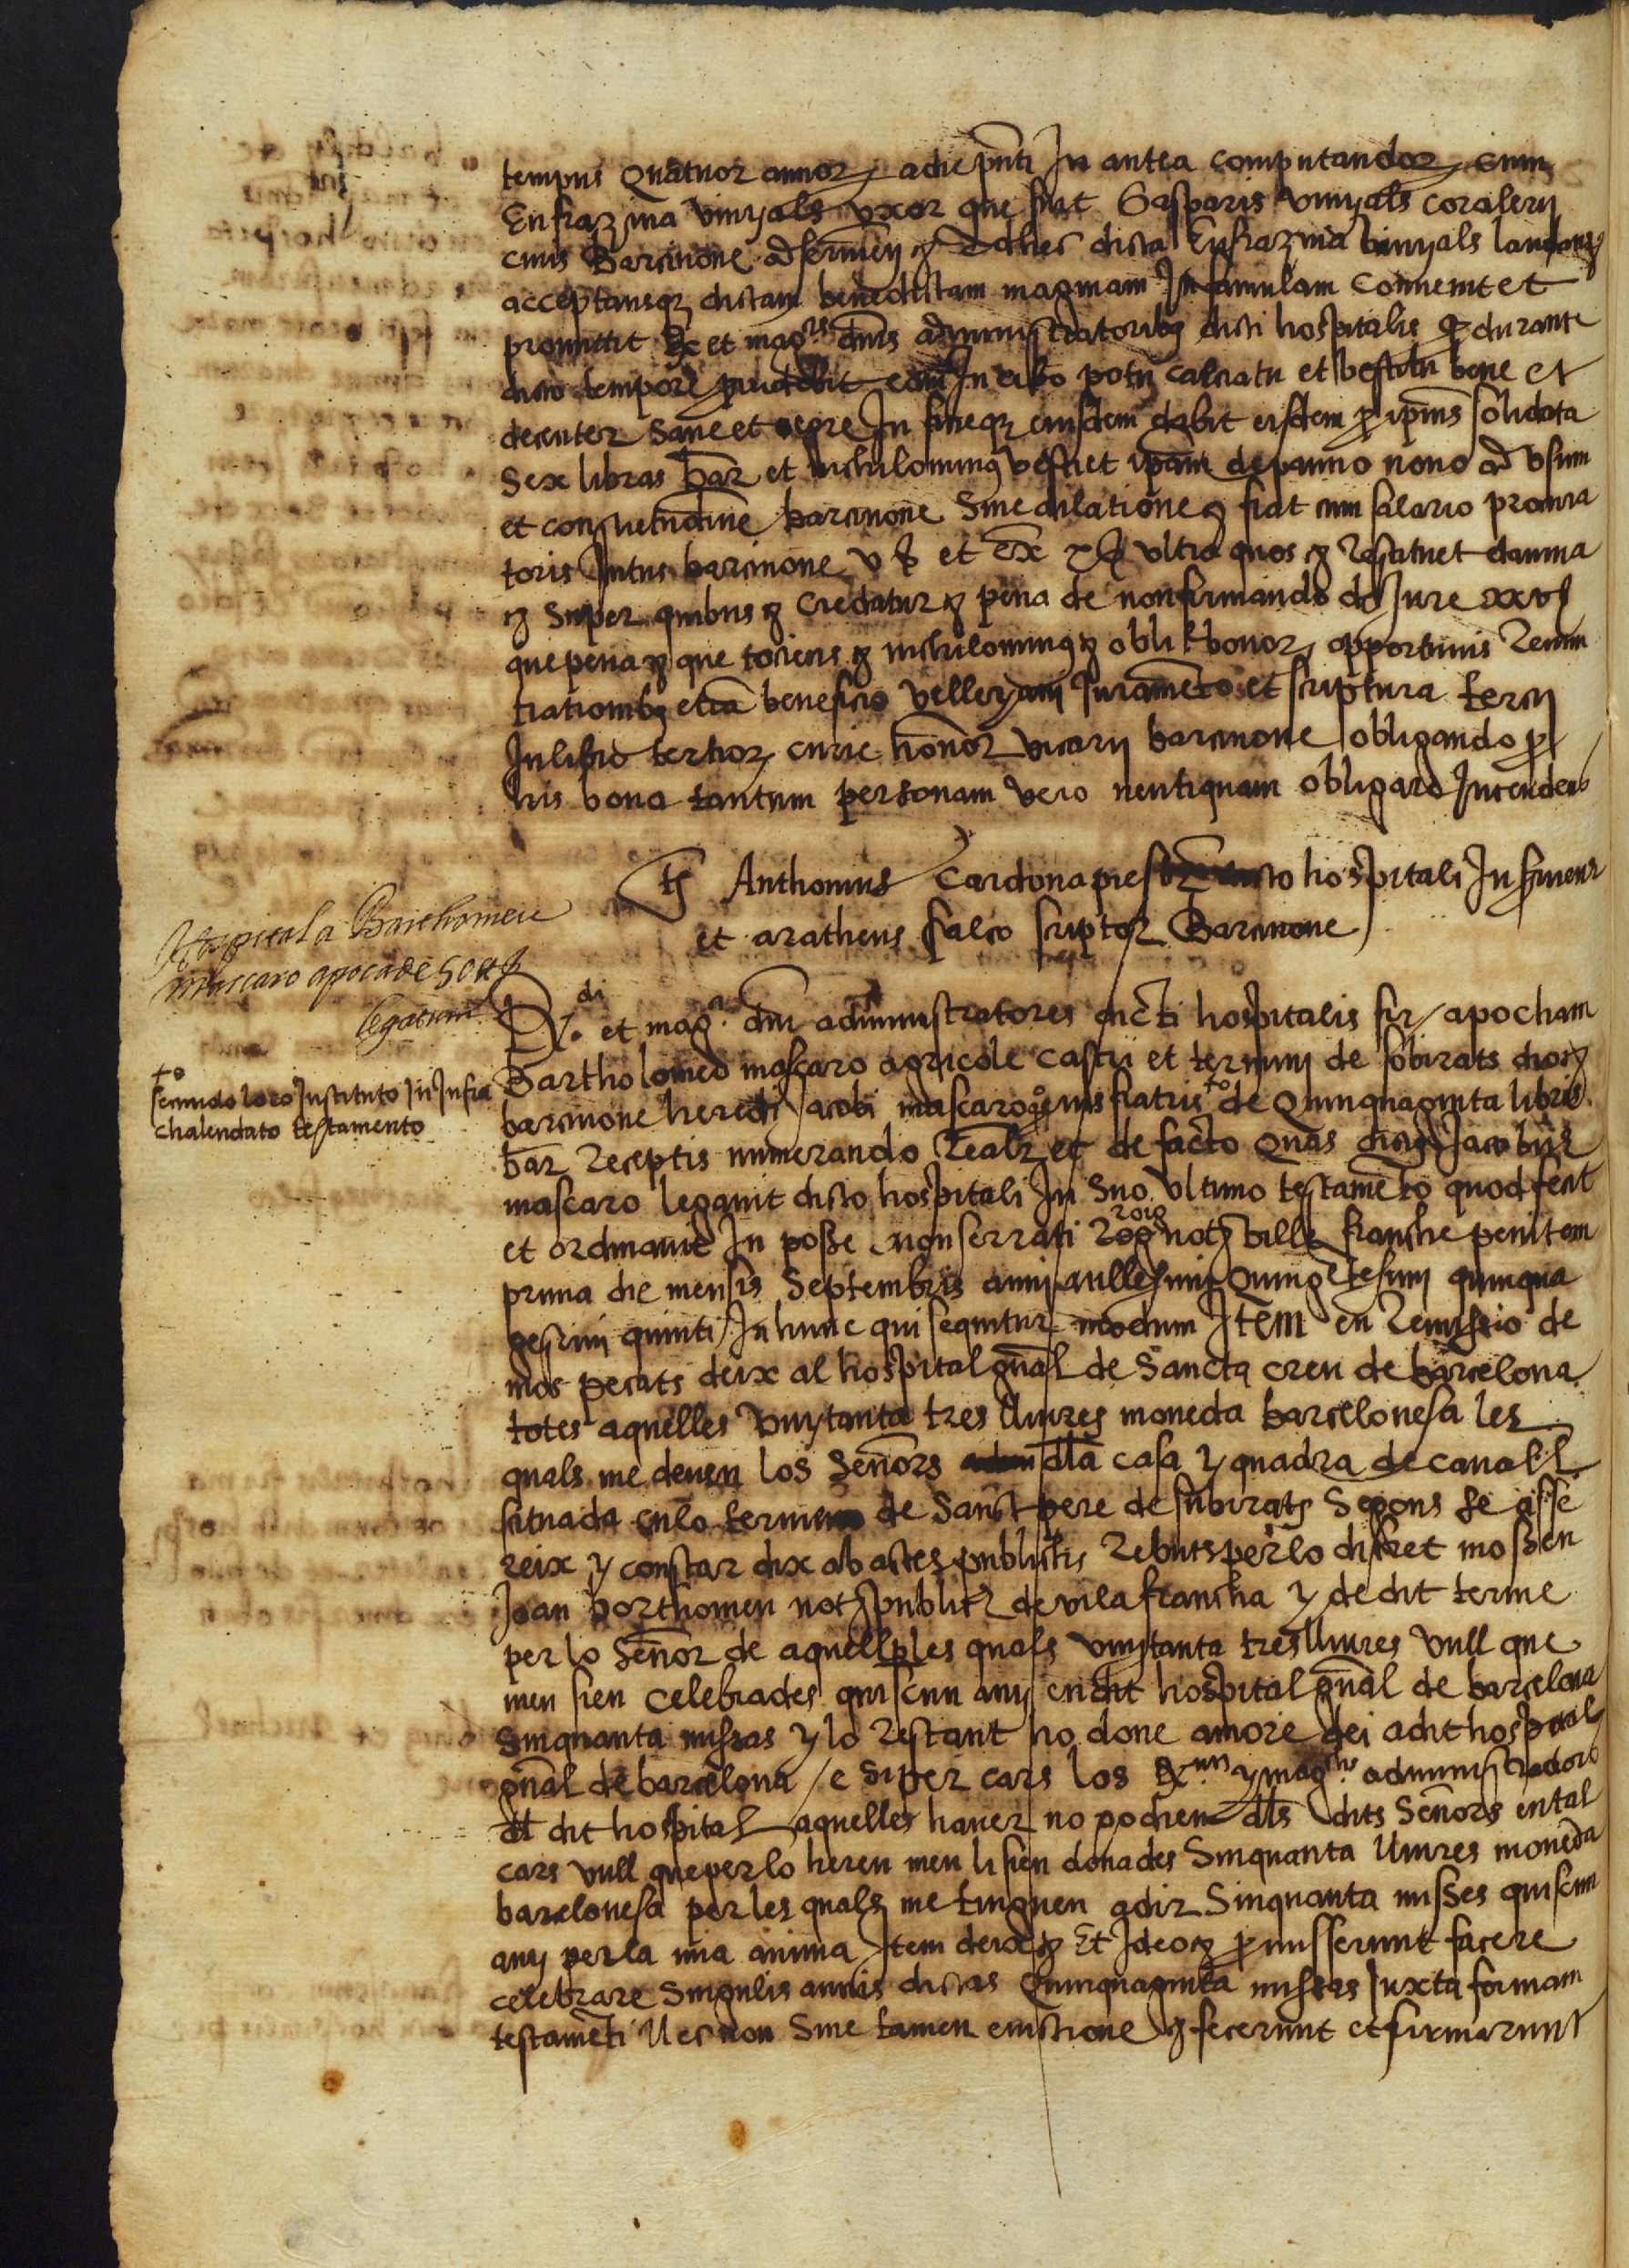 tempus Quatuor annorz adie pnti In antea computandorz Cum
Eufrazina vinyals vxor que fuit Gasparis vinyals coralerij
ciuis Barcinone ad seruien &c Ad hec dicta Eufrazina vinyals laudans &c
acceptansqz dictam benedictam magnam In famulam Conuenit et
promittit R. et mag.cis dnis administratoribq dicti hospitalis q durante
dicto tempore prouidebit eam In cibo potu calciatu et vestitu bene et
decenter Sane et egre In fineqz eiusdem dabit eisdem p ipius solidata
Sex libras bar et nichilominq vestiet ipam de panno nouo ad vsum
et consuetudine barcinone Sine dilatione &c fiat cum salario procura
toris Intus barcinone v ß et ex x ß vltra quos &c Restituet damna
&c Super quibus &c Credatur &c pena de non firmando de Jure xxv ß
que pena &c que tociens &c nichilominq &c obli t bonorz opportunis Renun
tiationibq etia beneficio velleyani Iurameto et scriptura tercij
In libro tertiorz curie honor vicarij barcinone obligando p
his bona tantum personam vero neutiquam obligare Intendens
ts Anthonius Cardona presbr dicto hospitali In seruiens
et aratheus falco scriptor Barcinone
Hospital a Barthomeu
mascaro apoca de 50 ll
legatum
R.di et mag.ci dni administratores dicti hospitalis fir apocham
Bartholomeo mascaro agricole castri et termini de sobirats dioc &c
barcinone heredi Jacobi mascaro eius fratris to de Quinquaginta libris
to
secundo loco Instituto In Infra
chalendato testamento
bar Receptis numerando Realr et de facto Quas dictus Jacobus
mascaro legauit dicto hospitali In Suo vltimo testameto quod fecit
et ordinauit In posse monserrati Rog roig not &c ville franche penitem
prima die mensis Septembris anni millesimi Quingetesimi quinqua
gesimi quinti In hunc qui sequitur modum Item en Remissio de
mos pecats deix al hospital gnal de Sancta creu de barcelona
totes aquelles vuytanta tres lliures moneda barcelonesa les
quals me deuen los Señors dla casa y quadra de canals
situada en lo terme de Sanct pere de subirats Segons se asse
reix y constar dix ab actes publichs Rebuts per lo discret mossen
Joan borthomeu not publich de vilafrancha y de dit terme
per lo Señor de aquell ples quals vuytanta tres lliures vull que
men sien celebrades quiscun any en dit hospital gnal de barcelona
Sinquanta missas y lo Restant ho done amore dei a dit hospital
gnal de barcelona / e si per cars los R.nts y mag.chs administradors
dl dit hospital aquelles hauer no podien dls dits Señors en tal
cars vull que per lo hereu meu li sien donades Sinquanta lliures moneda
barcelonesa per les quals me tinguen a dir Sinquanta misses quiscun
any per la mia anima Item deix &c Et Ideo &c promisserunt facere
celebrare Singulis annis dictas Quinquaginta missas Juxta formam
testameti Nec non Sine tamen euictione &c fecerunt et firmarunt